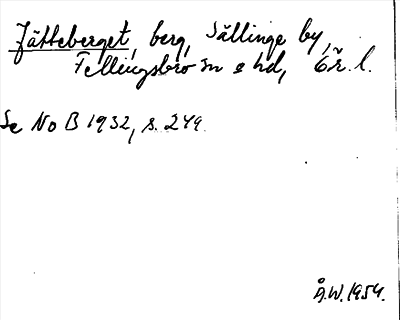 Jätteberget, berg, Sällinge by,
Fellingsbro sn o hd, Ör. l.
Se NoB 1932, s. 249.
Å.W. 1954.